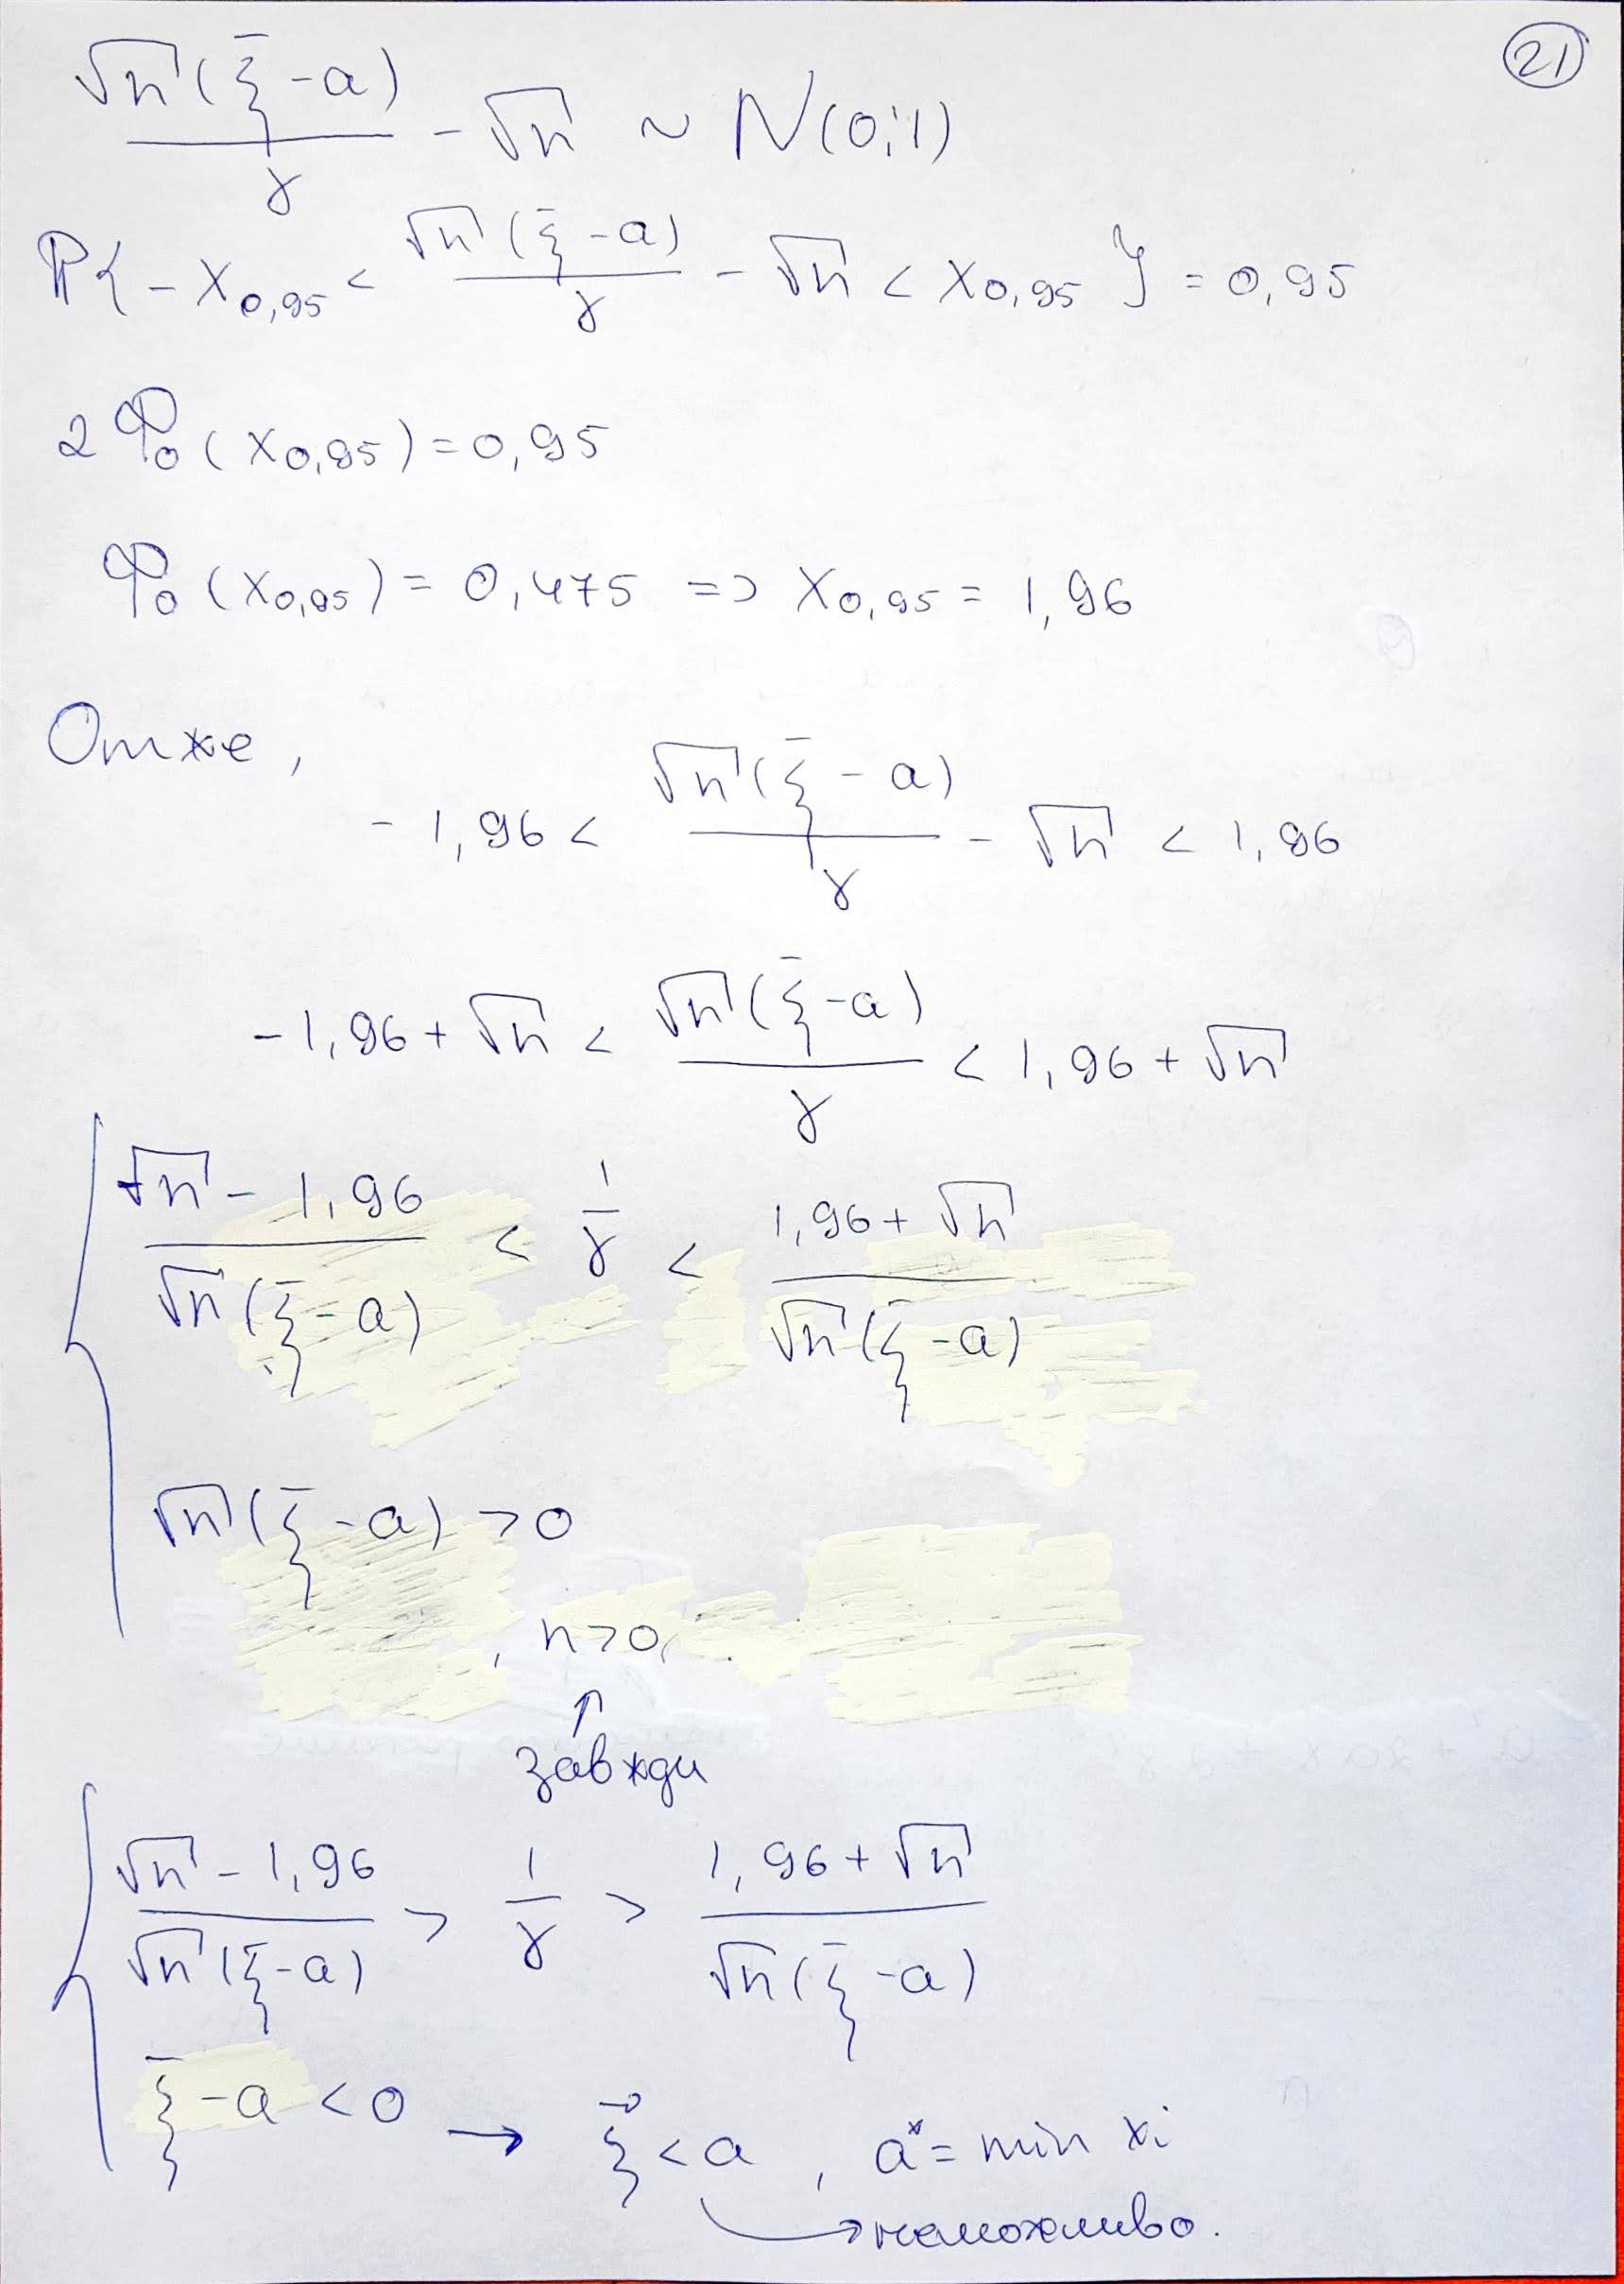 21
√n(ξ̄ - a)/γ - √n ~ N(0;1)
P{ -x₀,₉₅ < √n(ξ̄ - a)/γ - √n < x₀,₉₅ } = 0,95
2Φ₀(x₀,₉₅) = 0,95
Φ₀(x₀,₉₅) = 0,475 => x₀,₉₅ = 1,96
Отже,
-1,96 < √n(ξ̄ - a)/γ - √n < 1,96
-1,96 + √n < √n(ξ̄ - a)/γ < 1,96 + √n
{ (√n - 1,96)/(√n(ξ̄ - a)) < 1/γ < (1,96 + √n)/(√n(ξ̄ - a))
√n(ξ̄ - a) > 0
, n>0,
↑
завжди
{ (√n - 1,96)/(√n(ξ̄ - a)) > 1/γ > (1,96 + √n)/(√n(ξ̄ - a))
ξ̄ - a < 0 → ξ̄ < a , a* = min xᵢ
→ неможливо.